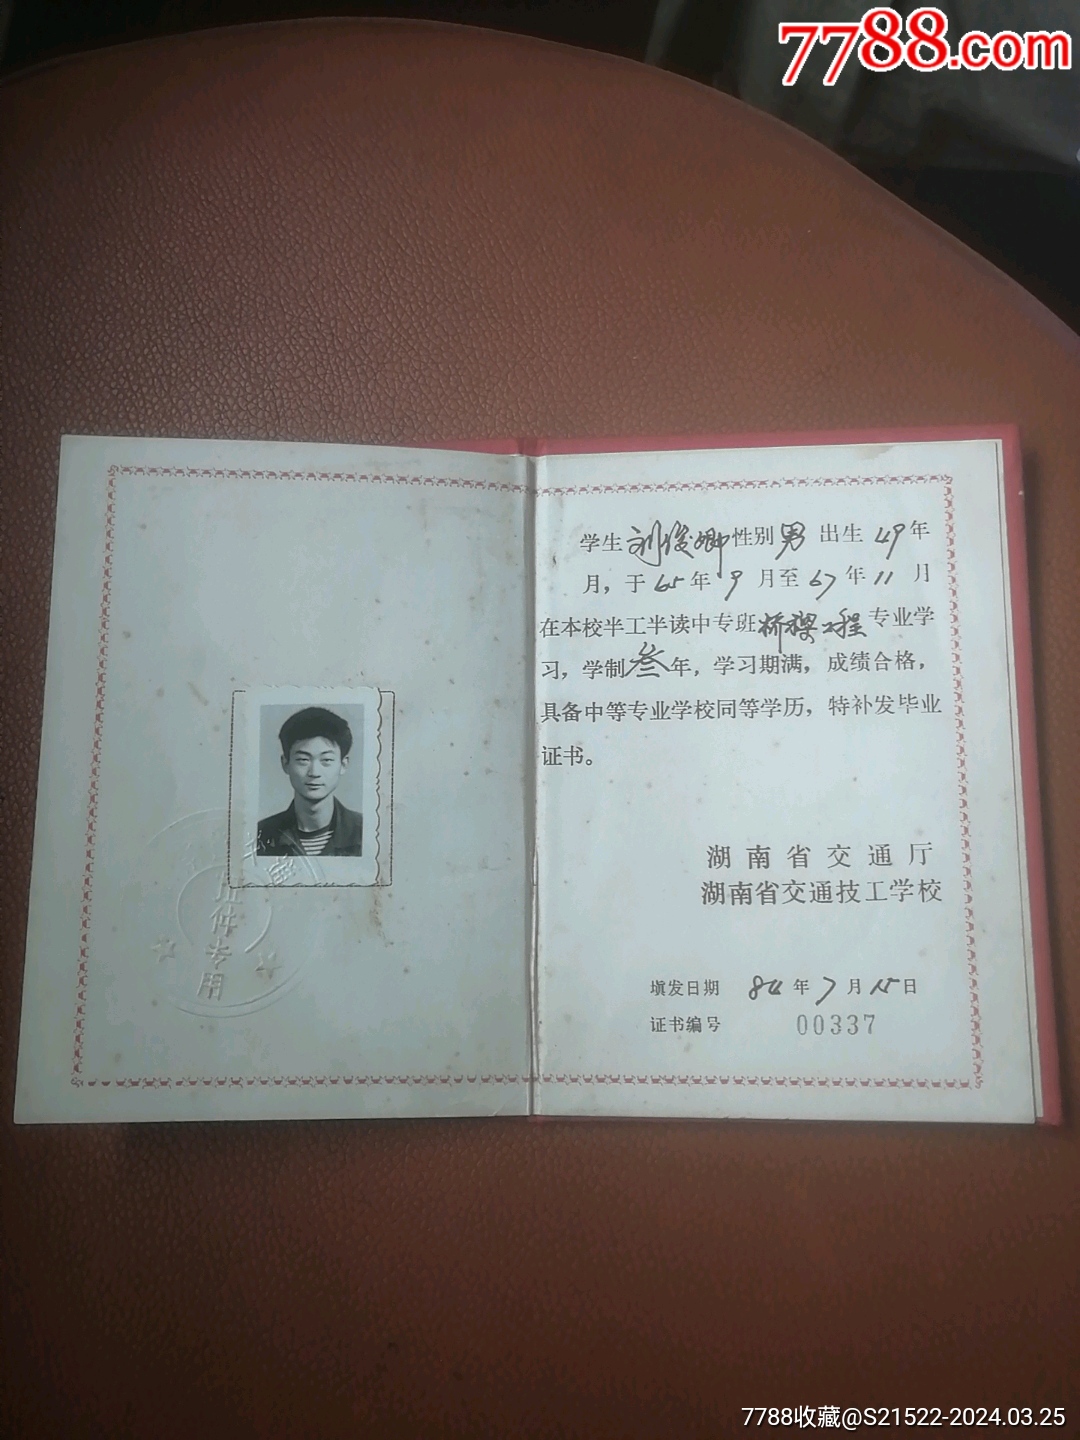 7788.com
学生刘俊卿性别男出生49年
月，于65年9月至67年11月
在本校半工半读中专班桥梁工程专业学
习，学制叁年，学习期满，成绩合格，
具备中等专业学校同等学历，特补发毕业
证书。
湖南省交通厅
湖南省交通技工学校
填发日期 84年7月15日
证书编号 00337
证件专用
7788收藏@S21522-2024.03.25